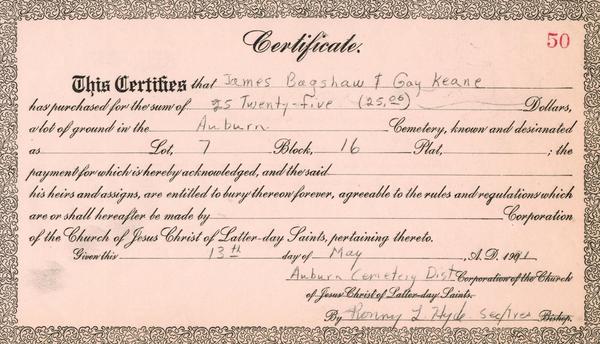 50
Certificate.
This Certifies that James Bagshaw & Gay Keane
has purchased for the sum of 25 Twenty-five (25.00) Dollars,
a lot of ground in the Auburn Cemetery, known and designated
as Lot, 7 Block, 16 Plat, ; the
payment for which is hereby acknowledged, and the said
his heirs and assigns, are entitled to bury thereon forever, agreeable to the rules and regulations which
are or shall hereafter be made by Corporation
of the Church of Jesus Christ of Latter-day Saints, pertaining thereto.
Given this 13th day of May, A.D.
Auburn Cemetery Dist Corporation of the Church
of Jesus Christ of Latter-day Saints.
By Ronny L. Hyde Sec/Tres Bishop.